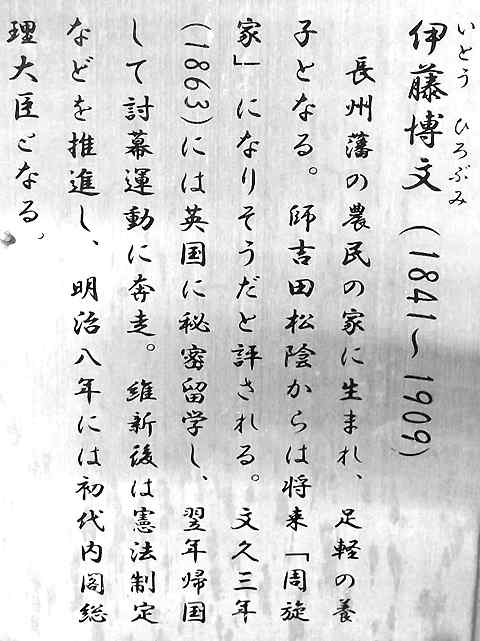 いとう ひろぶみ
伊藤博文(1841～1909)
長州藩の農民の家に生まれ、足軽の養
子となる。師吉田松陰からは将来「周旋
家」になりそうだと評される。文久三年
(1863)には英国に秘密留学し、翌年帰国
して討幕運動に奔走。維新後は憲法制定
などを推進し、明治八年には初代内閣総
理大臣となる。